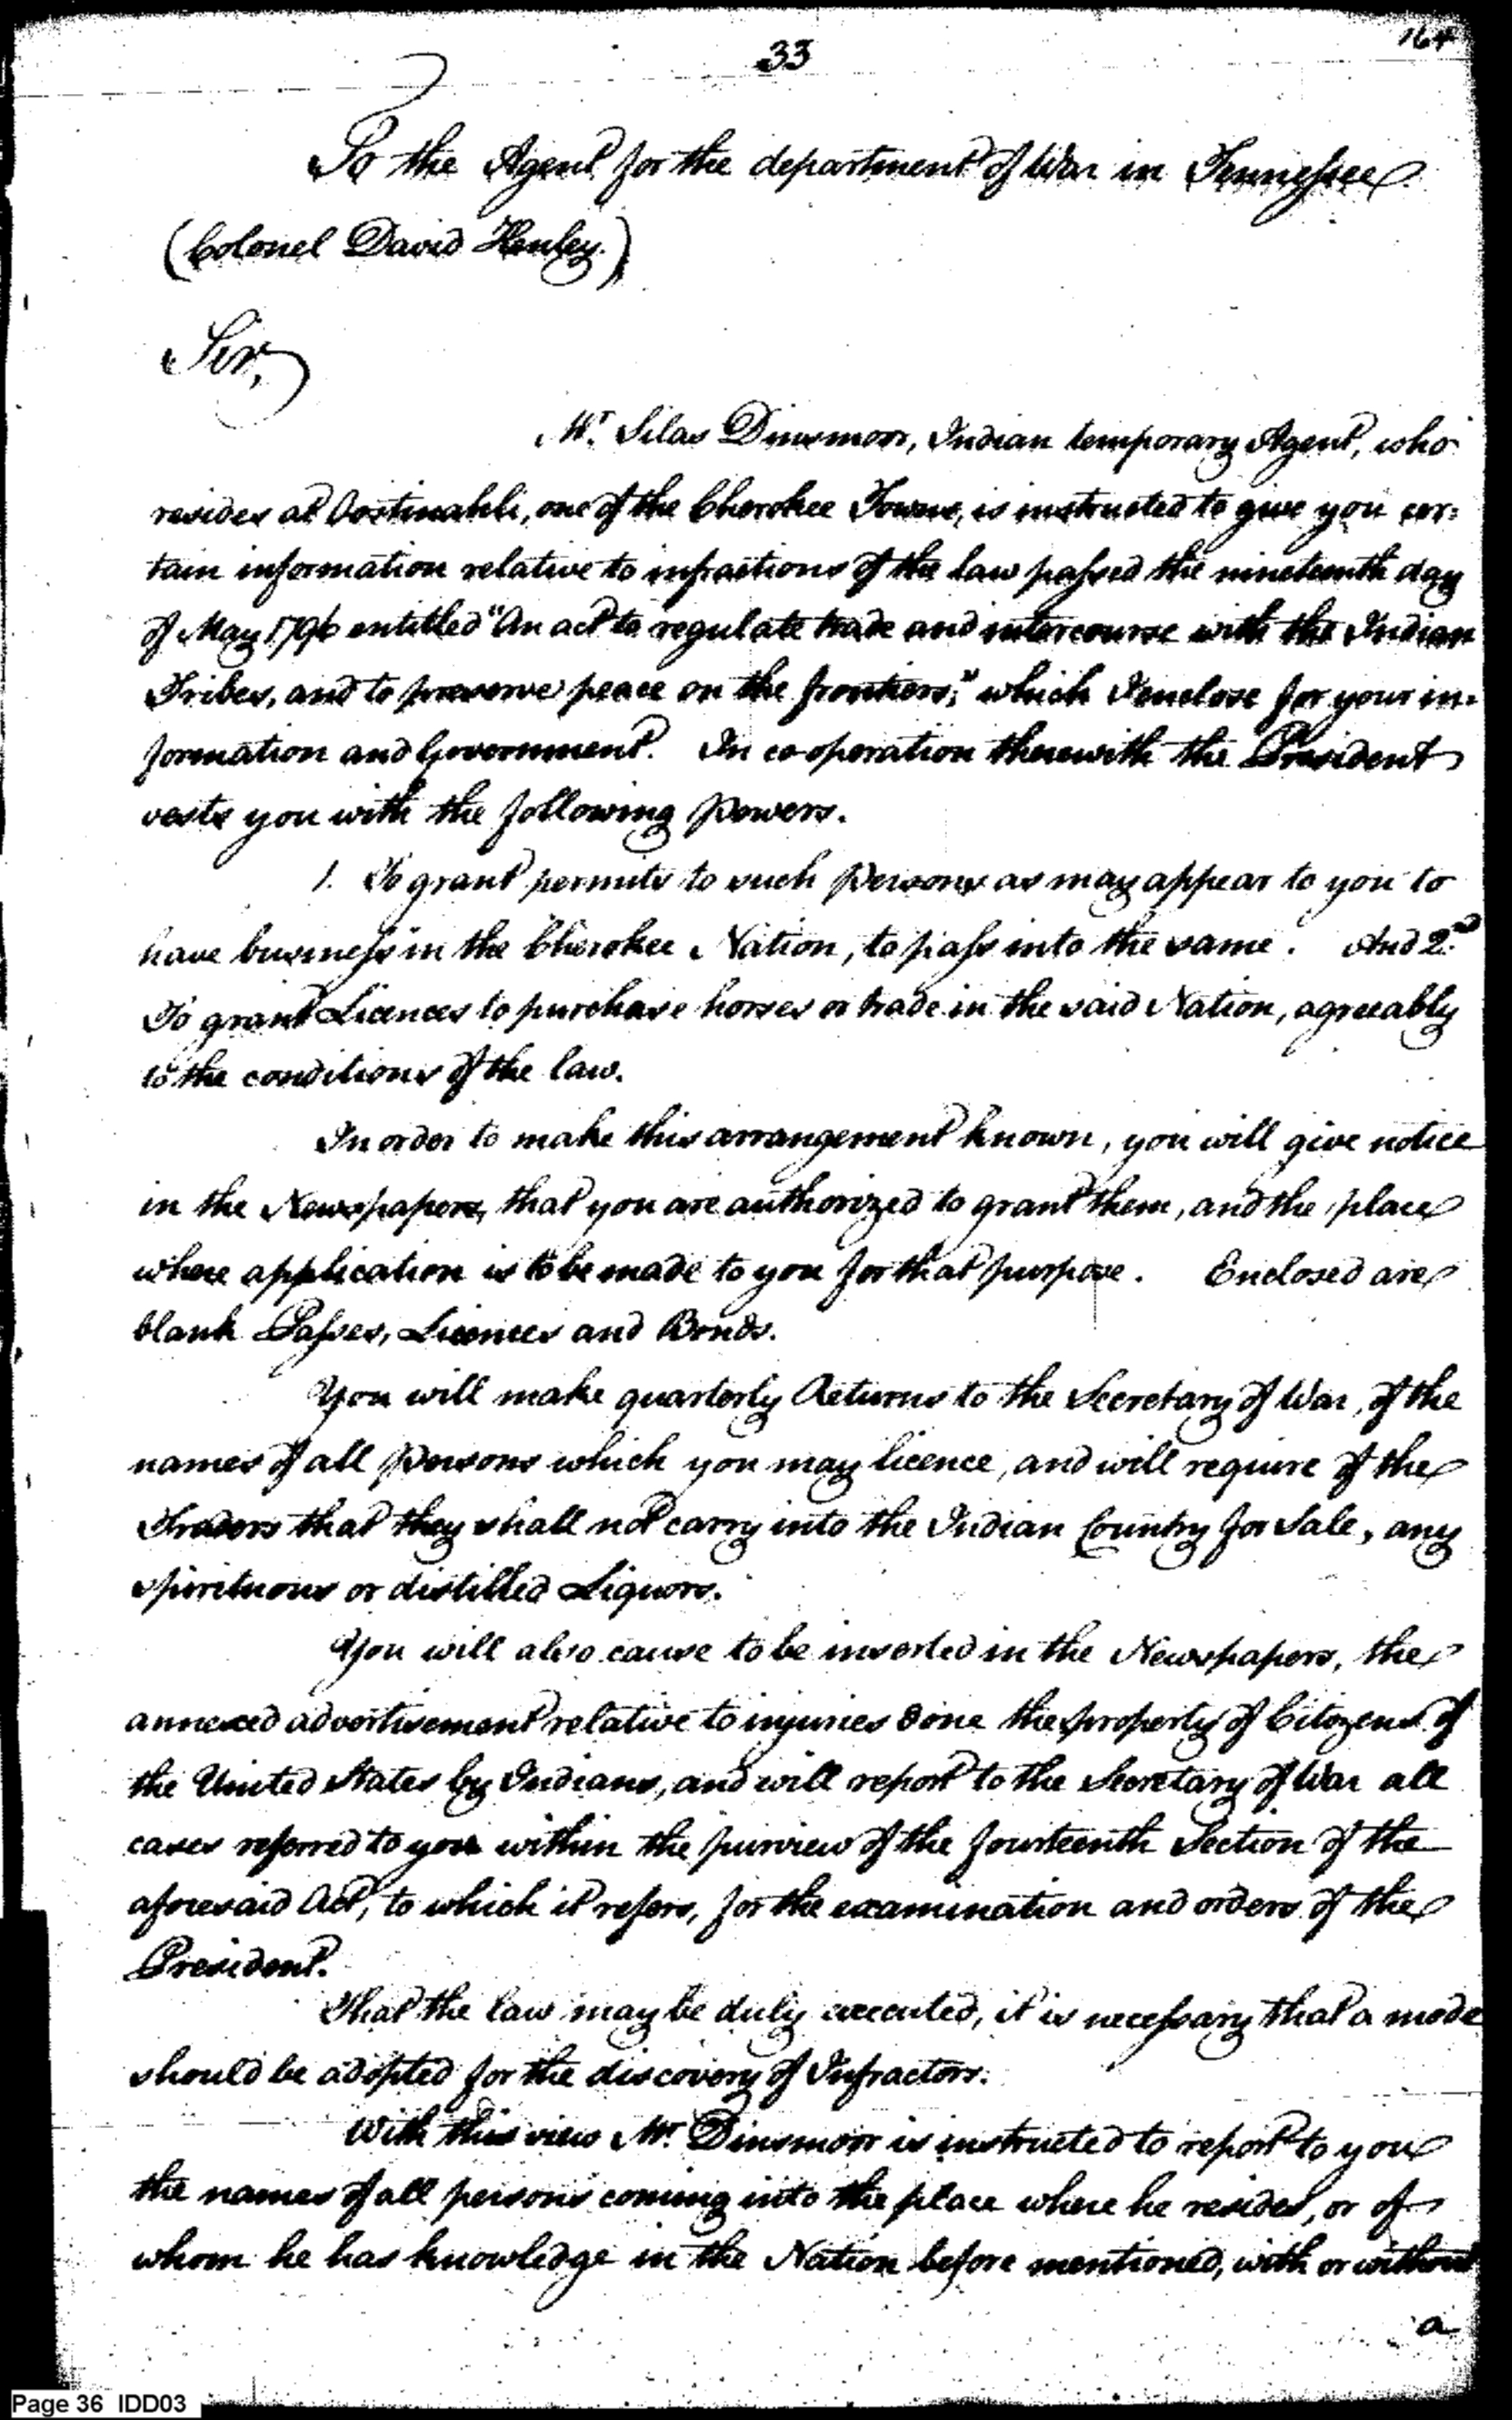 33
164
To the Agent for the department of War in Tennessee
(Colonel David Henley.)
Sir,
Mr. Silas Dinsmoor, Indian temporary Agent, who
resides at Oostinahli, one of the Cherokee Towns, is instructed to give you cer=
tain information relative to infractions of the law passed the nineteenth day
of May 1796 entitled "An act to regulate trade and intercourse with the Indian
Tribes, and to preserve peace on the frontiers," which I enclose for your in=
formation and Government. In co-operation therewith the President
vests you with the following Powers.
1. To grant permits to such Persons as may appear to you to
have business in the Cherokee Nation, to pass into the same. And 2nd
To grant Licences to purchase horses or trade in the said Nation, agreeably
to the conditions of the law.
In order to make this arrangement known, you will give notice
in the Newspapers, that you are authorized to grant them, and the place
where application is to be made to you for that purpose. Enclosed are
blank Passes, Licences and Bonds.
You will make quarterly Returns to the Secretary of War, of the
names of all Persons which you may licence, and will require of the
Traders that they shall not carry into the Indian Country for Sale, any
spirituous or distilled Liquors.
You will also cause to be inserted in the Newspapers, the
annexed advertisement relative to injuries done the property of Citizens of
the United States by Indians, and will report to the Secretary of War all
cases referred to you within the purview of the fourteenth Section of the
aforesaid Act, to which it refers, for the examination and orders of the
President.
That the law may be duly executed, it is necessary that a mode
should be adopted for the discovery of Infractors.
With this view Mr. Dinsmoor is instructed to report to you
the names of all persons coming into the place where he resides, or of
whom he has knowledge in the Nation before mentioned, with or without
a
Page 36 IDD03